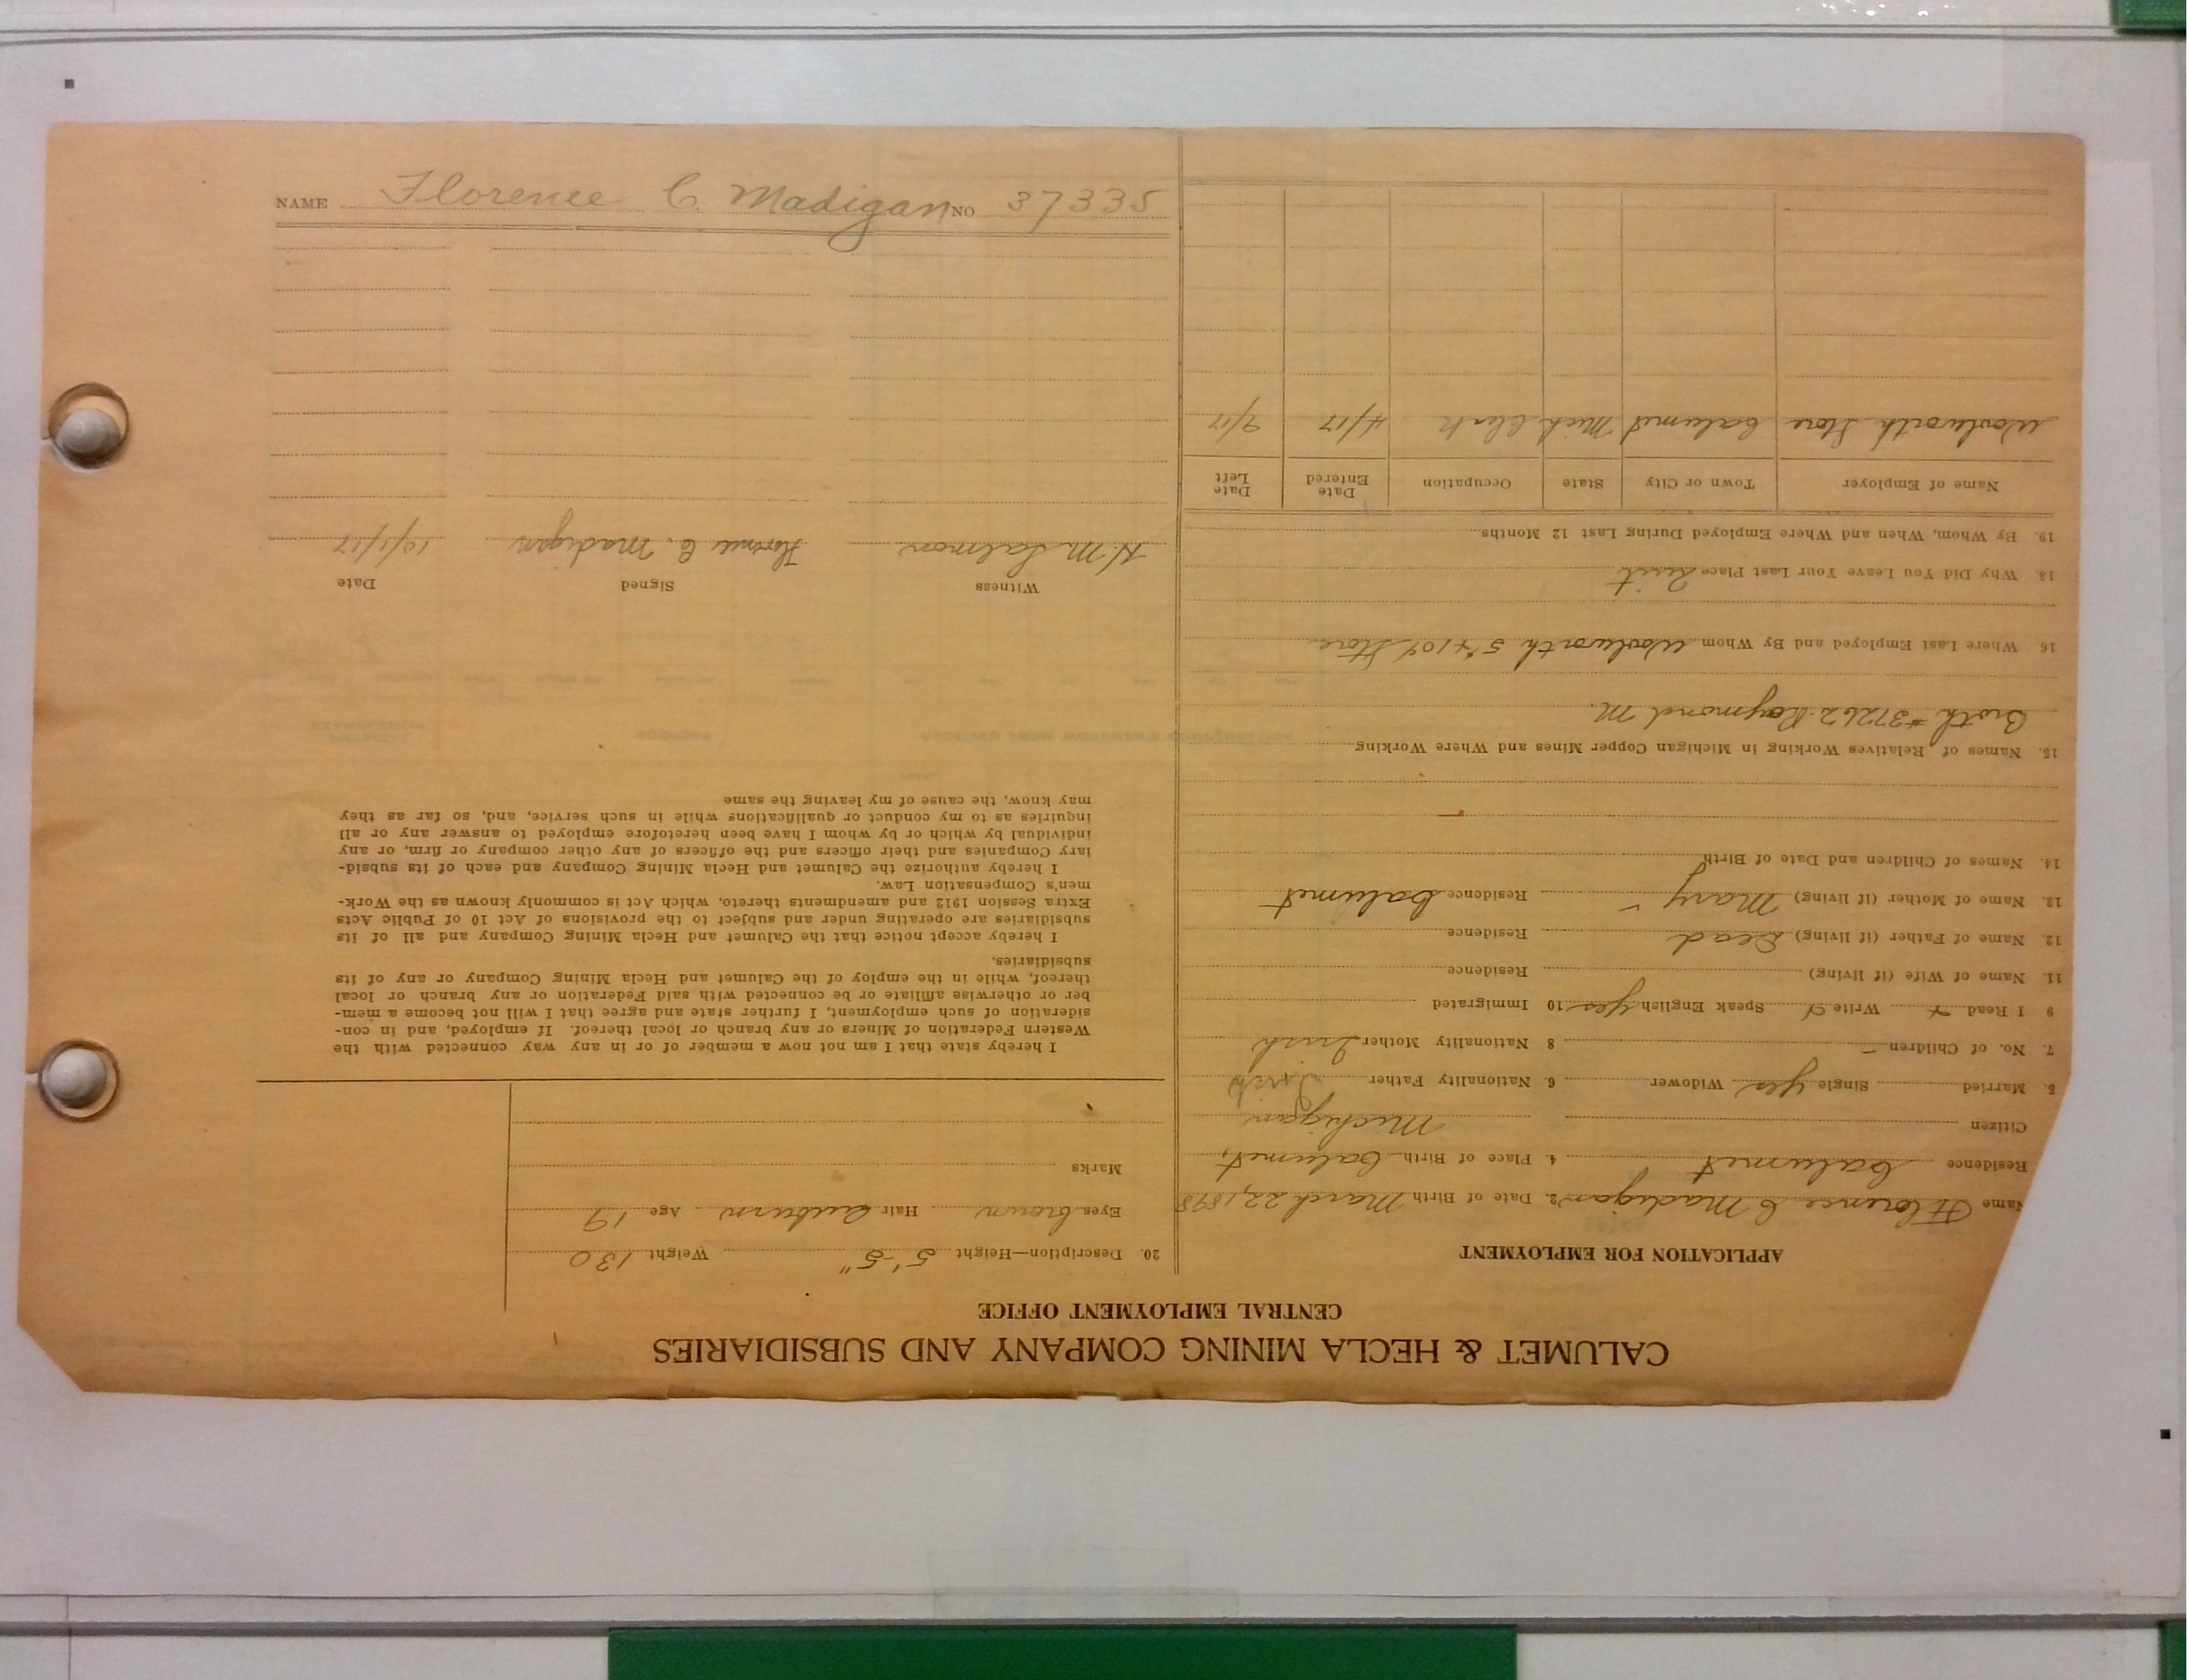 CALUMET & HECLA MINING COMPANY AND SUBSIDIARIES
CENTRAL EMPLOYMENT OFFICE
APPLICATION FOR EMPLOYMENT
Name Florence C Madigan 2. Date of Birth March 22, 1898
Residence Calumet 4. Place of Birth Calumet,
Citizen Michigan
5. Married Single yes Widower 6. Nationality Father Irish
7. No. of Children – 8 Nationality Mother Irish
9 I Read Write Speak English yes 10 Immigrated
11. Name of Wife (if living) Residence
12. Name of Father (if living) Dead Residence
13. Name of Mother (if living) Mary Residence Calumet
14. Names of Children and Date of Birth
15. Names of Relatives Working in Michigan Copper Mines and Where Working
Broth #37262 Raymond M.
16 Where Last Employed and By Whom Woolworth 5 + 10¢ Store
18. Why Did You Leave Your Last Place Quit
19. By Whom, When and Where Employed During Last 12 Months
Name of Employer Town or City State Occupation Date Entered Date Left
Woolworth Store Calumet Mich Clerk 4/17 9/17
20. Description—Height 5'-5" Weight 130
Eyes brown Hair Auburn Age 19
Marks
I hereby state that I am not now a member of or in any way connected with the
Western Federation of Miners or any branch or local thereof. If employed, and in con-
sideration of such employment, I further state and agree that I will not become a mem-
ber or otherwise affiliate or be connected with said Federation or any branch or local
thereof, while in the employ of the Calumet and Hecla Mining Company or any of its
subsidiaries.
I hereby accept notice that the Calumet and Hecla Mining Company and all of its
subsidiaries are operating under and subject to the provisions of Act 10 of Public Acts
Extra Session 1912 and amendments thereto, which Act is commonly known as the Work-
men's Compensation Law.
I hereby authorize the Calumet and Hecla Mining Company and each of its subsid-
iary Companies and their officers and the officers of any other company or firm, or any
individual by which or by whom I have been heretofore employed to answer any or all
inquiries as to my conduct or qualifications while in such service, and, so far as they
may know, the cause of my leaving the same
Witness Signed Date
H. M. Salmon Florence C. Madigan 10/1/17
NAME Florence C. Madigan NO 37335